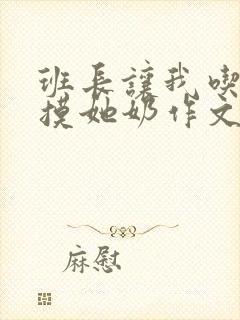 班長讓我喫
摸她奶作文
麻慰